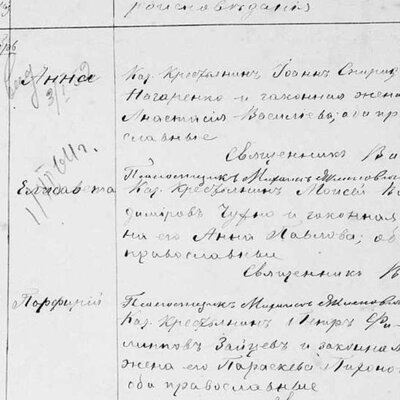 роисповѣданія
Анна
Каз. Крестьянинъ Іоаннъ Спирид
Назаренко и законная жена
Анастасія Васильева; оба пра
славные
Священникъ Ва
Елисавета
Псаломщикъ Михаилъ
Каз. Крестьянинъ Моисей В
диміровъ Чухно и законная
на его Анна Павлова; об
православные
Священникъ В
Порфирій
Псаломщикъ Михаилъ
Каз. Крестьянинъ Петръ Фи
липповъ Зайцевъ и законная
жена его Параскева Тихоно
оба православные